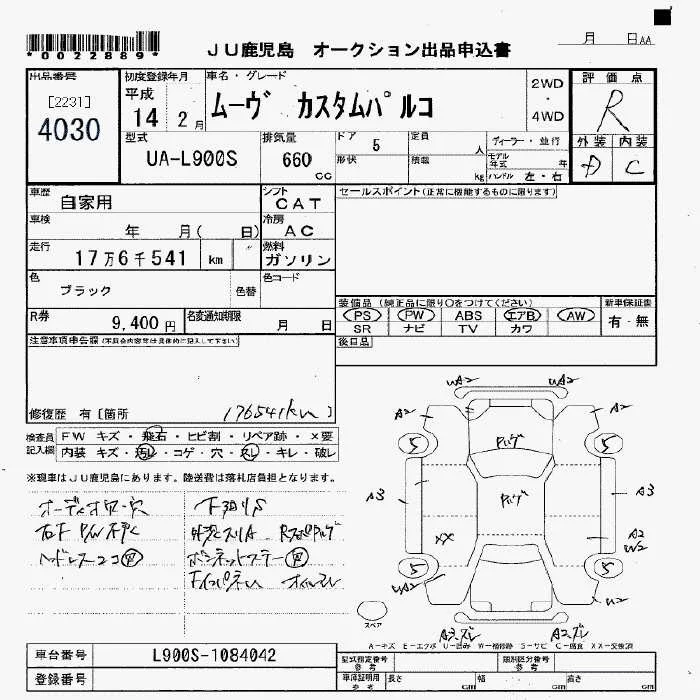 *0022889*
JU鹿児島 オークション出品申込書
月 日AA
出品番号
[2231]
4030
初度登録年月
平成
14 2月
車名・グレード
ムーヴ カスタムパルコ
2WD
・
4WD
評価点
R
型式
UA-L900S
排気量
660
CC
ドア 5
形状
定員
人
積載
kg
ディーラー・並行
モデル年式 年
ハンドル 左・右
外装 内装
D C
車歴
自家用
シフト
CAT
セールスポイント(正常に機能するものに限ります)
車検
年 月( 日)
冷房
AC
走行
17万6千541 km
燃料
ガソリン
色
ブラック
色替
色コード
R券
9,400円
名変通知期限
月 日
装備品(純正品に限り○をつけてください)
PS PW ABS エアB AW
SR ナビ TV カワ
新車保証書
有・無
後日品
注意事項申告欄(不具合内容等は具体的に記入して下さい)
修復歴 有[箇所 176541km]
検査員記入欄
FW キズ・飛石・ヒビ割・リペア跡・×要
内装 キズ・汚レ・コゲ・穴・スレ・キレ・破レ
※現車はJU鹿児島にあります。陸送費は落札店負担となります。
UA2 UA2
A2 A2
5 5
A3 A3
XX
A2
W2
5 5
UA2 U2
スペア
A3.ズレ A2.ズレ
A-キズ E-エクボ U-凹み W-補修跡 S-サビ C-腐食 XX-交換済
車台番号
L900S-1084042
登録番号
型式指定番号
参考
類別区分番号
参考
車庫証明用
参考
長さ cm 幅 cm 高さ cm